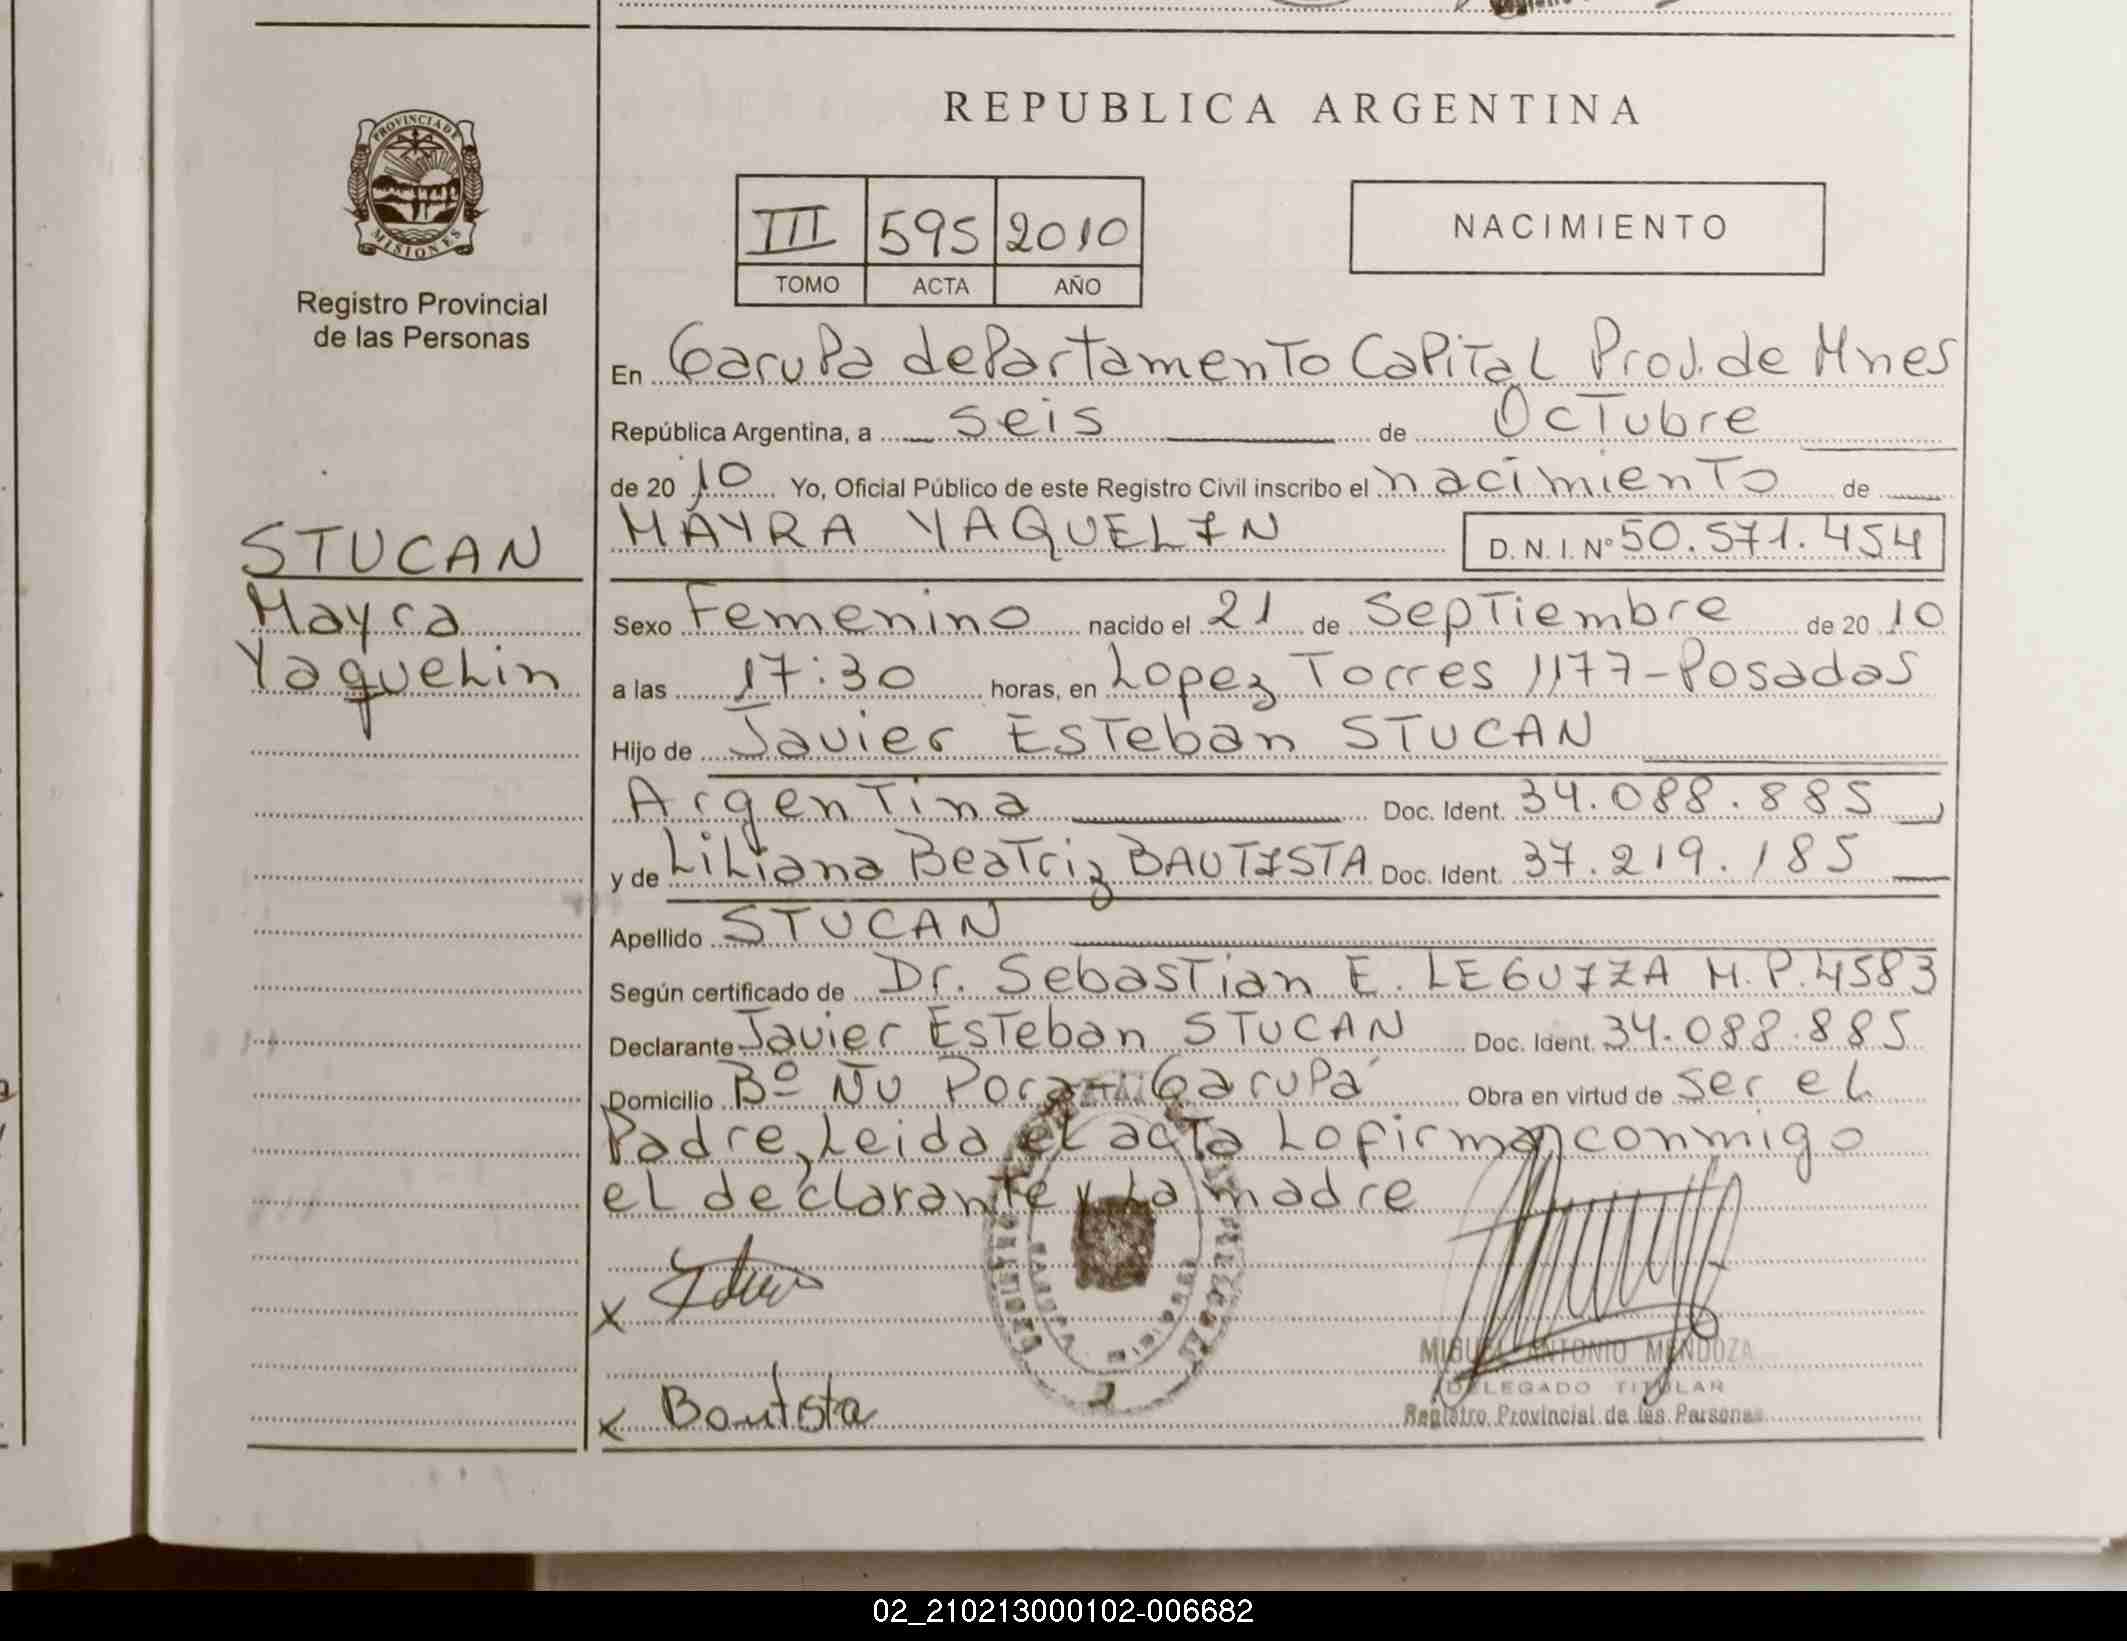 REPUBLICA ARGENTINA
PROVINCIA DE
MISIONES
Registro Provincial
de las Personas
III 595 2010
TOMO ACTA AÑO
NACIMIENTO
En Garupa departamento Capital Prov. de Mnes
República Argentina, a seis de Octubre
de 20 10 Yo, Oficial Público de este Registro Civil inscribo el nacimiento de
STUCAN
Mayra
Yaquelin
MAYRA YAQUELIN D. N. I. Nº 50.571.454
Sexo Femenino nacido el 21 de Septiembre de 20 10
a las 17:30 horas, en Lopez Torres 1177-Posadas
Hijo de Javier Esteban STUCAN
Argentina Doc. Ident. 34.088.885
y de Liliana Beatriz BAUTISTA Doc. Ident. 37.219.185
Apellido STUCAN
Según certificado de Dr. Sebastian E. LEGUIZA M.P. 4583
Declarante Javier Esteban STUCAN Doc. Ident. 34.088.885
Domicilio Bº Ñu Pora - Garupá Obra en virtud de ser el
Padre, Leida el acta Lo firman conmigo
el declarante y La madre
x
x Bautista
MIGUEL ANTONIO MENDOZA
DELEGADO TITULAR
Registro Provincial de las Personas
02_210213000102-006682